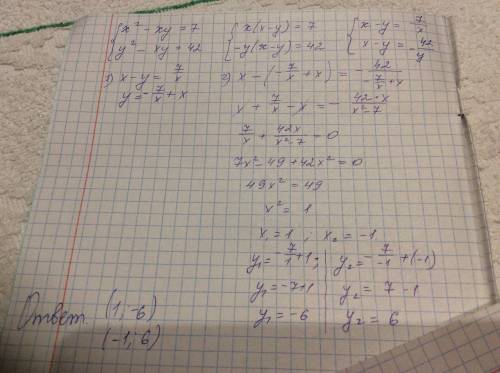 { x² - xy = 7
y² - xy = 42
{ x(x-y) = 7
-y(x-y) = 42
{ x-y = 7/x
x-y = -42/y
1) x-y = 7/x
y = -7/x + x
2) x - (-7/x + x) = - 42/(-7/x + x)
x + 7/x - x = - 42·x/(x²-7)
7/x + 42x/(x²-7) = 0
7x² - 49 + 42x² = 0
49x² = 49
x² = 1
x₁ = 1 ; x₂ = -1
y₁ = -7/1 + 1 ; y₂ = -7/-1 + (-1)
y₁ = -7+1 y₂ = 7 - 1
y₁ = -6 y₂ = 6
Ответ (1; -6)
(-1; 6)